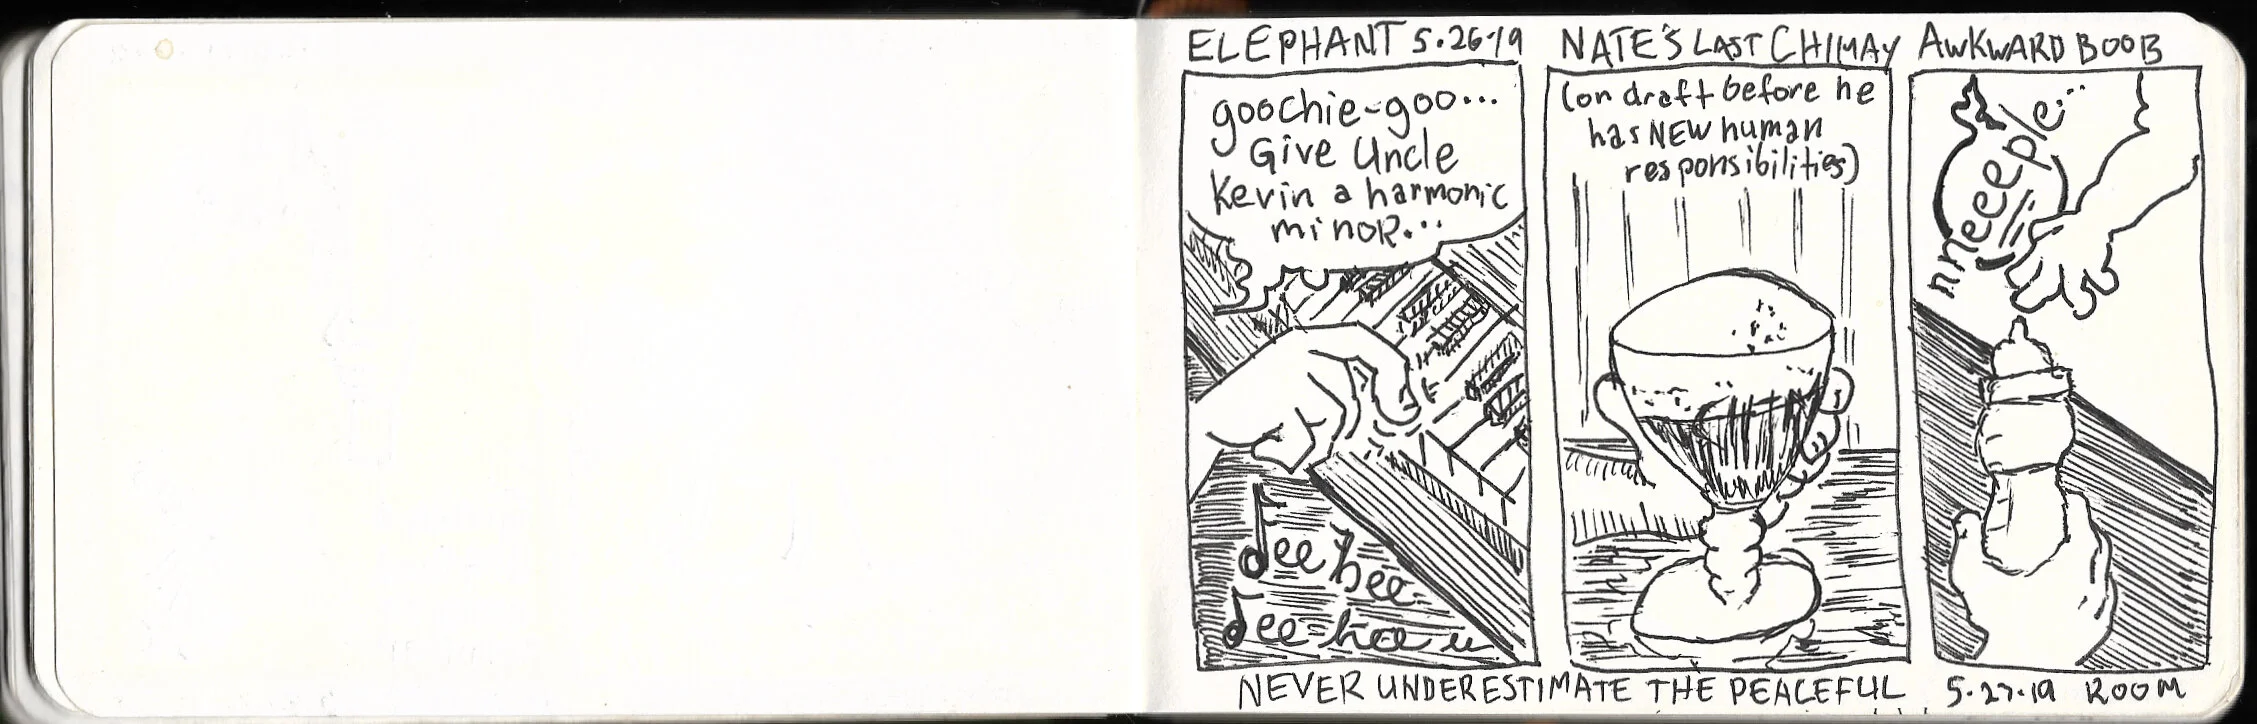 ELEPHANT 5.26.19
goochie-goo...
Give Uncle
Kevin a harmonic
minoR...
dee hee
dee hee
NATE'S LAST CHIMAY
(on draft before he
has NEW human
responsibilities)
AWKWARD BOOB
nneeeple...
NEVER UNDERESTIMATE THE PEACEFUL 5.27.19 ROOM